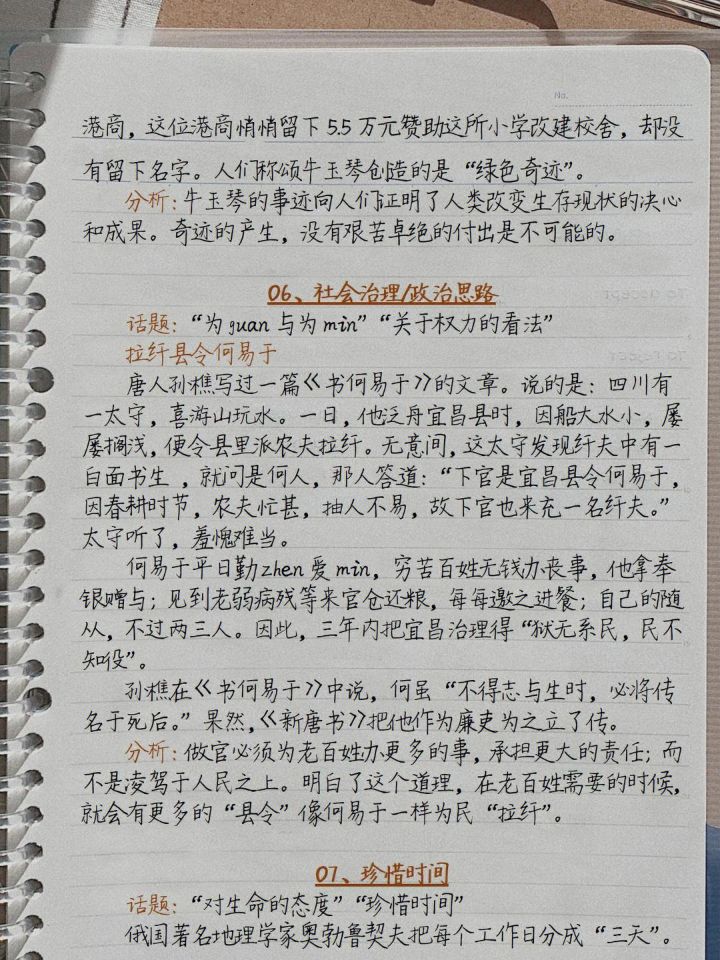 No.
港商，这位港商悄悄留下5.5万元赞助这所小学改建校舍，却没
有留下名字。人们称颂牛玉琴创造的是“绿色奇迹”。
分析：牛玉琴的事迹向人们证明了人类改变生存现状的决心
和成果。奇迹的产生，没有艰苦卓绝的付出是不可能的。
06、社会治理/政治思路
话题：“为guan与为min”“关于权力的看法”
拉纤县令何易于
唐人孙樵写过一篇《书何易于》的文章。说的是：四川有
一太守，喜游山玩水。一日，他泛舟宜昌县时，因船大水小，屡
屡搁浅，便令县里派农夫拉纤。无意间，这太守发现纤夫中有一
白面书生，就问是何人，那人答道：“下官是宜昌县令何易于，
因春耕时节，农夫忙甚，抽人不易，故下官也来充一名纤夫。”
太守听了，羞愧难当。
何易于平日勤zhen爱min，穷苦百姓无钱办丧事，他拿奉
银赠与；见到老弱病残等来官仓还粮，每每邀之进餐；自己的随
从，不过两三人。因此，三年内把宜昌治理得“狱无系民，民不
知役”。
孙樵在《书何易于》中说，何虽“不得志与生时，必将传
名于死后。”果然，《新唐书》把他作为廉吏为之立了传。
分析：做官必须为老百姓办更多的事，承担更大的责任；而
不是凌驾于人民之上。明白了这个道理，在老百姓需要的时候，
就会有更多的“县令”像何易于一样为民“拉纤”。
07、珍惜时间
话题：“对生命的态度”“珍惜时间”
俄国著名地理学家奥勃鲁契夫把每个工作日分成“三天”。